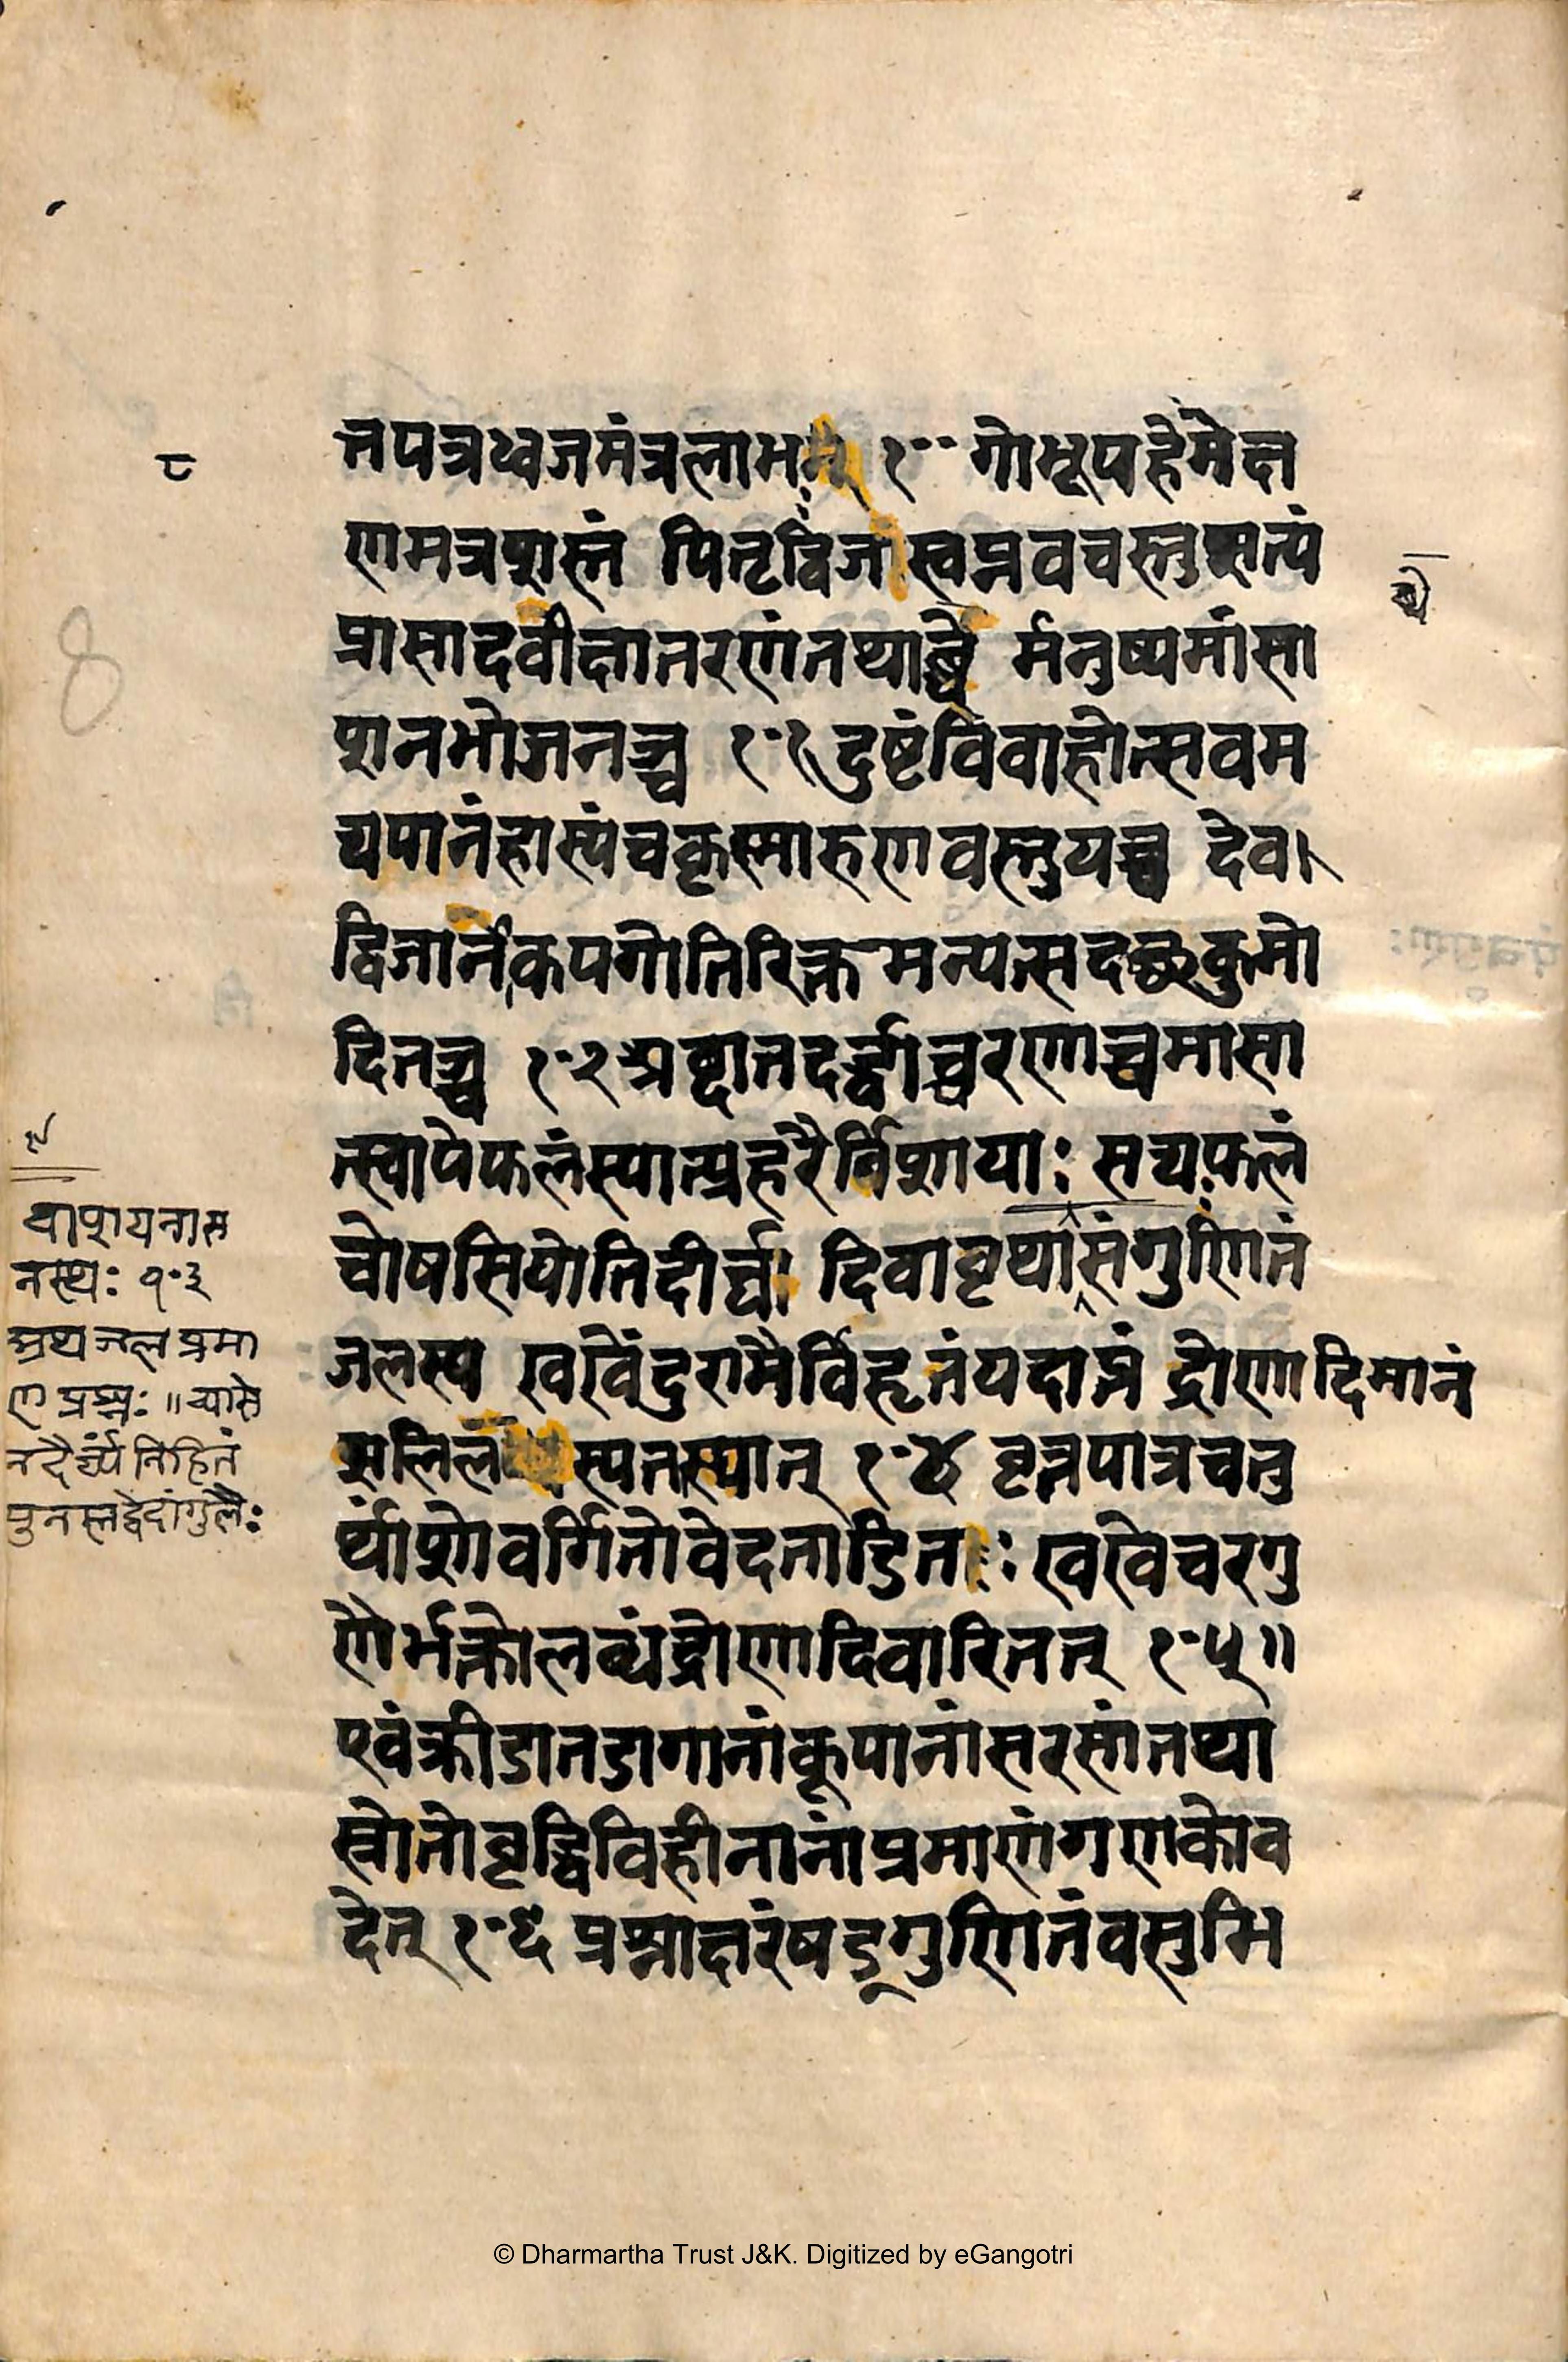 तपत्रध्वजमंत्रलाभम् १०० गोभूपहेमेक्ष
णमत्रशस्तं पितृद्विजास्वप्नवचस्तुसत्यं
प्रासादवीक्षातरणंतथाब्धे र्मनुष्यमांसा
शनभोजनञ्च १०१ दुष्टंविवाहोत्सवम
द्यपानंहास्यंचकृस्मारुणवस्तुयच्च देव।
द्विजार्नकपगोतिरिक्त मन्यत्सदच्छकुमो
दितञ्च १०२ अब्दातदर्द्धाच्चरणाच्चमासा
त्स्वापेफलंस्यात्प्रहरैर्निशायाः सद्यःफलं
चोषसियोतिदीर्घा दिवावृथासंगुणितं
जलस्य खखेंदुरामैर्विहृतंयदाप्तं द्रोणादिमानं
सलिलस्यतस्यात् १०४ वृत्तपात्रचतु
र्थांशोवर्गितोवेदताडितः खखेचरगु
णैर्भक्तोलब्धंद्रोणादिवारितत् १०५॥
एवंक्रीडातडागानांकूपानांसरसांतथा
स्वोतोवृद्धिविहीनानांप्रमाणंगणकोव
देत् १०६ प्रश्नाक्षरंषड्गुणितंवसुभि
८
8
थाशयनास
नस्थः १०३
अथ जल प्रमा
ण प्रश्नः ॥ व्यासे
न दैर्घ्यं निहितं
पुनस्तद्वेदांगुलैः
© Dharmartha Trust J&K. Digitized by eGangotri